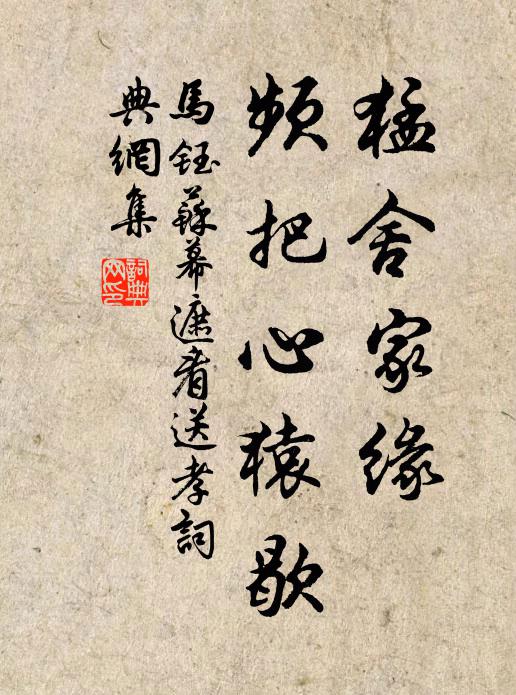 猛舍家緣
頻把心猿歇
馬鈺蘇幕遮看送孝詞
典網集
詞典
网印